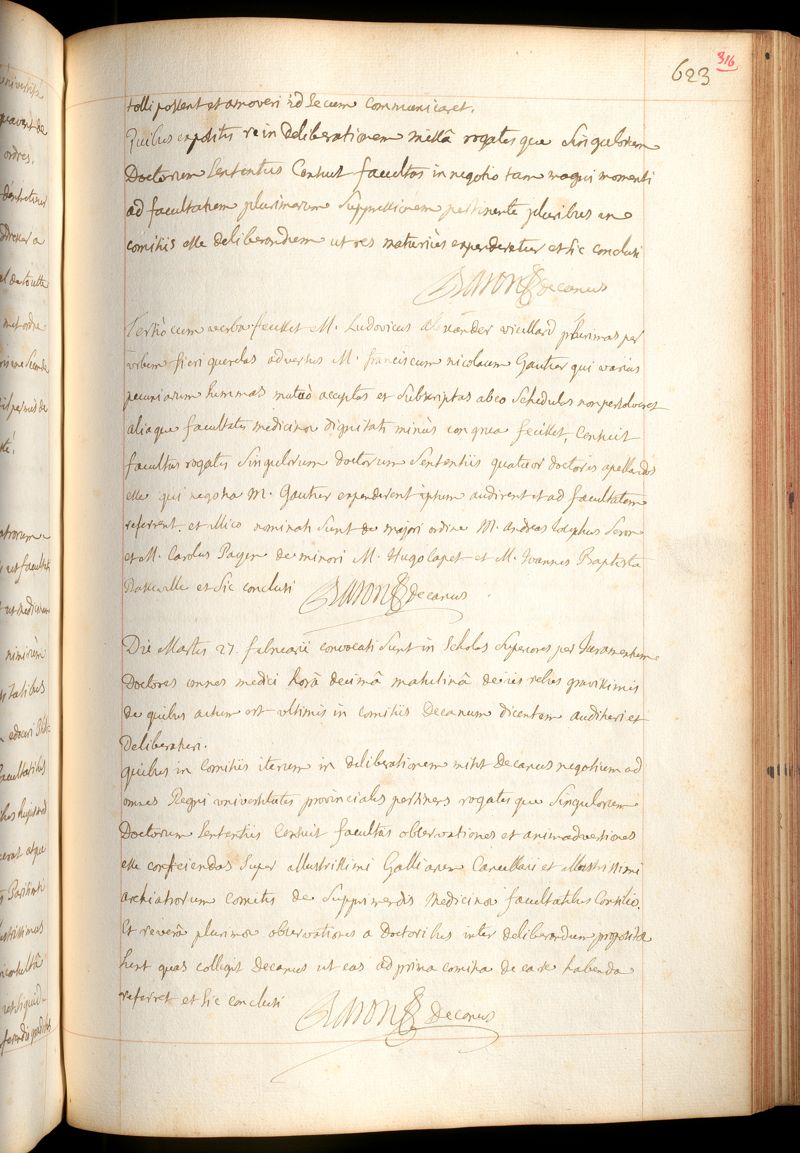 316
623
tolli possent et amoveri id secum communicaret.
Quibus expositis re in deliberationem missâ rogatis que singulorum
Doctorum sententiis censuit facultas in negotio tam magni momenti
ad facultatum plurimarum suppressionem pertinente pluribus in
comitiis esse deliberandum ut res maturius expenderetur et sic conclusi
Baron decanus
Tertiò cum verba fecisset M. Ludovicus alexander vieillard plurimas per
urbem fieri querelas adversus M. franciscum nicolaum Gautier qui varias
pecuniarum summas mutuò acceptas et subscriptas ab eo schedulas non persolveret
aliaque facultatis medicinæ dignitati minùs congrua fecisset, censuit
facultas rogatis singulorum doctorum sententiis quatuor doctores apellandos
esse qui negotia M. Gautier expenderent ipsum audirent et ad facultatem
referrent. et illico nominati sunt de majori ordine M. andreas Josephus
et M. Carolus Payen de minori M. Hugo Capet et M. Joannes Baptista
et sic conclusi Baron decanus
Die Martis 27. februarii convocati sunt in scholas superiores per Juramentum
Doctores omnes medici horâ decimâ matutinâ de iis rebus gravissimis
de quibus actum est ultimis in comitiis Decanum dicentem audituri et
Deliberaturi.
quibus in comitiis iterum in deliberationem misit Decanus negotium ad
omnes Regni universitates provinciales pertinens rogatis que singulorum
Doctorum sententiis censuit facultas observationes et animadversiones
esse conficiendas super illustrissimi Galliarum Cancellarii et illustrissimi
archiatrorum comitis de supprimendis medicinæ facultatibus consilio.
Et reverâ plurimæ observationes a Doctoribus inter deliberandum propositæ
sunt quas collegit decanus ut eas ad prima comitia de ea re habenda
referret et sic conclusi Baron Decanus